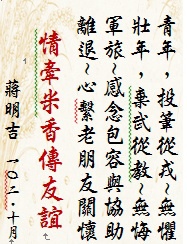 青年，投筆從戎～無懼
壯年，棄武從教～無悔
軍旅～感念包容與協助
離退～心繫老朋友關懷
情牽米香傳友誼
蔣明吉 一〇二．十月